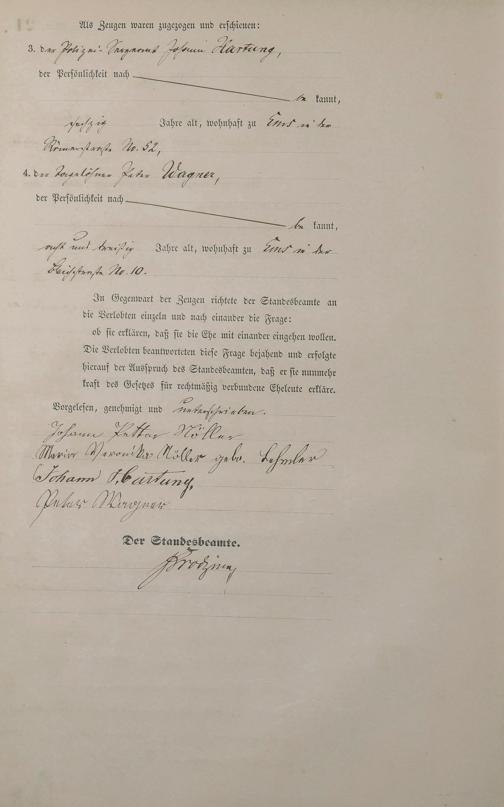 Als Zeugen waren zugezogen und erschienen:
3. der Polizei-Sergeant Johann Hartung,
der Persönlichkeit nach
be kannt,
sechzig Jahre alt, wohnhaft zu Ems in der
Römerstraße No. 52,
4. der Tagelöhner Peter Wagner,
der Persönlichkeit nach
be kannt,
acht und dreißig Jahre alt, wohnhaft zu Ems in der
No. 10.
In Gegenwart der Zeugen richtete der Standesbeamte an
die Verlobten einzeln und nach einander die Frage:
ob sie erklären, daß sie die Ehe mit einander eingehen wollen.
Die Verlobten beantworteten diese Frage bejahend und erfolgte
hierauf der Ausspruch des Standesbeamten, daß er sie nunmehr
kraft des Gesetzes für rechtmäßig verbundene Eheleute erkläre.
Vorgelesen, genehmigt und unterschrieben.
Johann Petter Nöller
Maria Veronika Nöller geb.
Johann Hartung,
Peter Wagner
Der Standesbeamte.